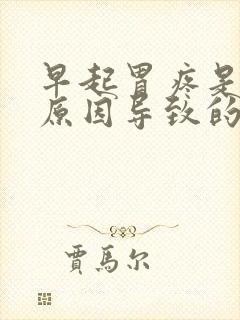 早起胃疼是
原因导致的
贾馬尔